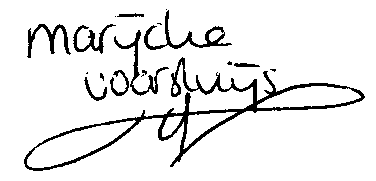 marijcke
voorsluijs